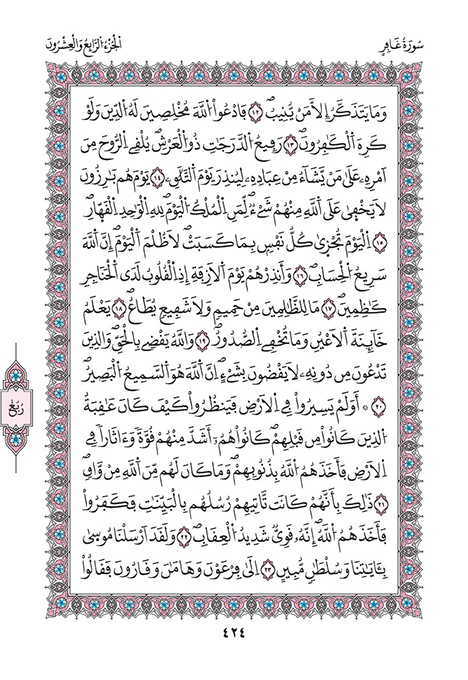 سُورَةُ غَافِرٍ
الجُزْءُ الرَّابِعُ وَالْعِشْرُونَ
وَمَا يَتَذَكَّرُ إِلَّا مَنْ يُّنِيبُ ١٢ فَادْعُوا اللَّهَ مُخْلِصِينَ لَهُ الدِّينَ وَلَوْ
كَرِهَ الْكَٰفِرُونَ ١٣ رَفِيعُ الدَّرَجَٰتِ ذُو الْعَرْشِ يُلْقِي الرُّوحَ مِنَ
اَمْرِهِ عَلَىٰ مَنْ يَّشَآءُ مِنْ عِبَادِهِ لِيُنذِرَ يَوْمَ التَّلَٰقِ ١٤ يَوْمَ هُم بَٰرِزُونَ
لَا يَخْفَىٰ عَلَى اللَّهِ مِنْهُمْ شَيْءٌ لِّمَنِ الْمُلْكُ الْيَوْمَ لِلهِ الْوَٰحِدِ الْقَهَّارِ
١٥ اِلْيَوْمَ تُجْزَىٰ كُلُّ نَفْسٍ بِمَا كَسَبَتْ لَا ظُلْمَ الْيَوْمَ إِنَّ اللَّهَ
سَرِيعُ الْحِسَابِ ١٦ وَأَنذِرْهُمْ يَوْمَ الَازِفَةِ إِذِ الْقُلُوبُ لَدَى الْحَنَاجِرِ
كَٰظِمِينَ ١٧ مَا لِلظَّٰلِمِينَ مِنْ حَمِيمٍ وَلَا شَفِيعٍ يُطَاعُ ١٨ يَعْلَمُ
خَآئِنَةَ الَاعْيُنِ وَمَا تُخْفِي الصُّدُورُ ١٩ وَاللَّهُ يَقْضِي بِالْحَقِّ وَالذِينَ
تَدْعُونَ مِن دُونِهِ لَا يَقْضُونَ بِشَيْءٍ اِنَّ اللَّهَ هُوَ السَّمِيعُ الْبَصِيرُ
٢٠ أَوَلَمْ يَسِيرُوا فِي الَارْضِ فَيَنظُرُوا كَيْفَ كَانَ عَٰقِبَةُ
الذِينَ كَانُوا مِن قَبْلِهِمْ كَانُوا هُمُ أَشَدَّ مِنْهُمْ قُوَّةً وَءَاثَارًا فِي
الَارْضِ فَأَخَذَهُمُ اللَّهُ بِذُنُوبِهِمْ وَمَا كَانَ لَهُم مِّنَ اللَّهِ مِنْ وَّاقٍ
٢١ ذَٰلِكَ بِأَنَّهُمْ كَانَت تَّاتِيهِمْ رُسُلُهُم بِالْبَيِّنَٰتِ فَكَفَرُوا
فَأَخَذَهُمُ اللَّهُ إِنَّهُ قَوِيٌّ شَدِيدُ الْعِقَابِ ٢٢ وَلَقَدَ اَرْسَلْنَا مُوسَىٰ
بِـَٔايَٰتِنَا وَسُلْطَٰنٍ مُّبِينٍ ٢٣ اِلَىٰ فِرْعَوْنَ وَهَٰمَٰنَ وَقَٰرُونَ فَقَالُوا
رُبُعٌ
٤٢٤